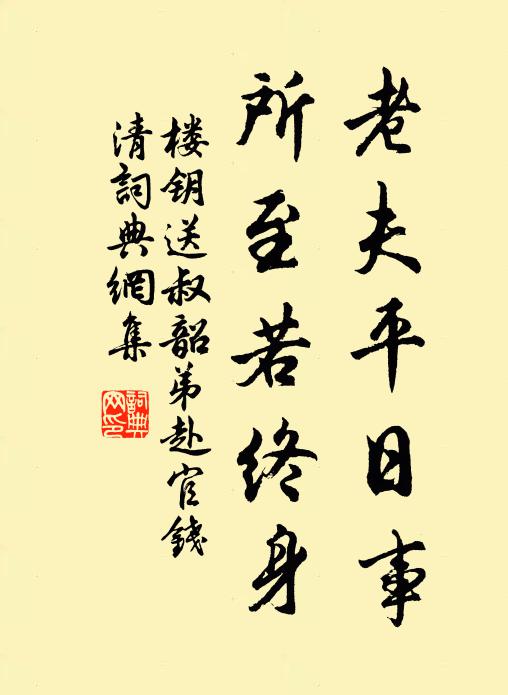 老夫平日事
所至若终身
楼钥送叔韶弟赴官錢
清詞典網集
詞典
网印